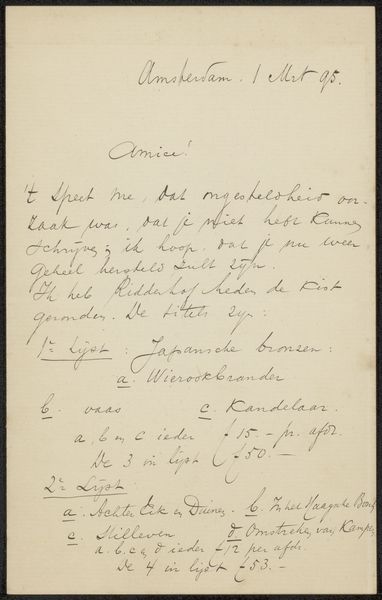 Amsterdam. 1 Mrt 95.
Amice!
't Speet me, dat ongesteldheid oor-
zaak was, dat je niet hebt kunnen
schrijven; ik hoop, dat je nu weer
geheel hersteld zult zijn.
Ik heb Ridderhof heden de kist
gezonden. De titels zijn:
1e Lijst: Japansche bronzen:
a. Wierookbrander
b. vaas c. Kandelaar.
a, b en c ieder f 15.- pr. afdr.
De 3 in lijst f 50.-
2e Lijst:
a. Achter Eik en Duinen b. In het Haagsche Bosch
c. Stilleven d. Omstreken van Kampen
a. b. c en d ieder f 12 per afdr.
De 4 in lijst f 53.-